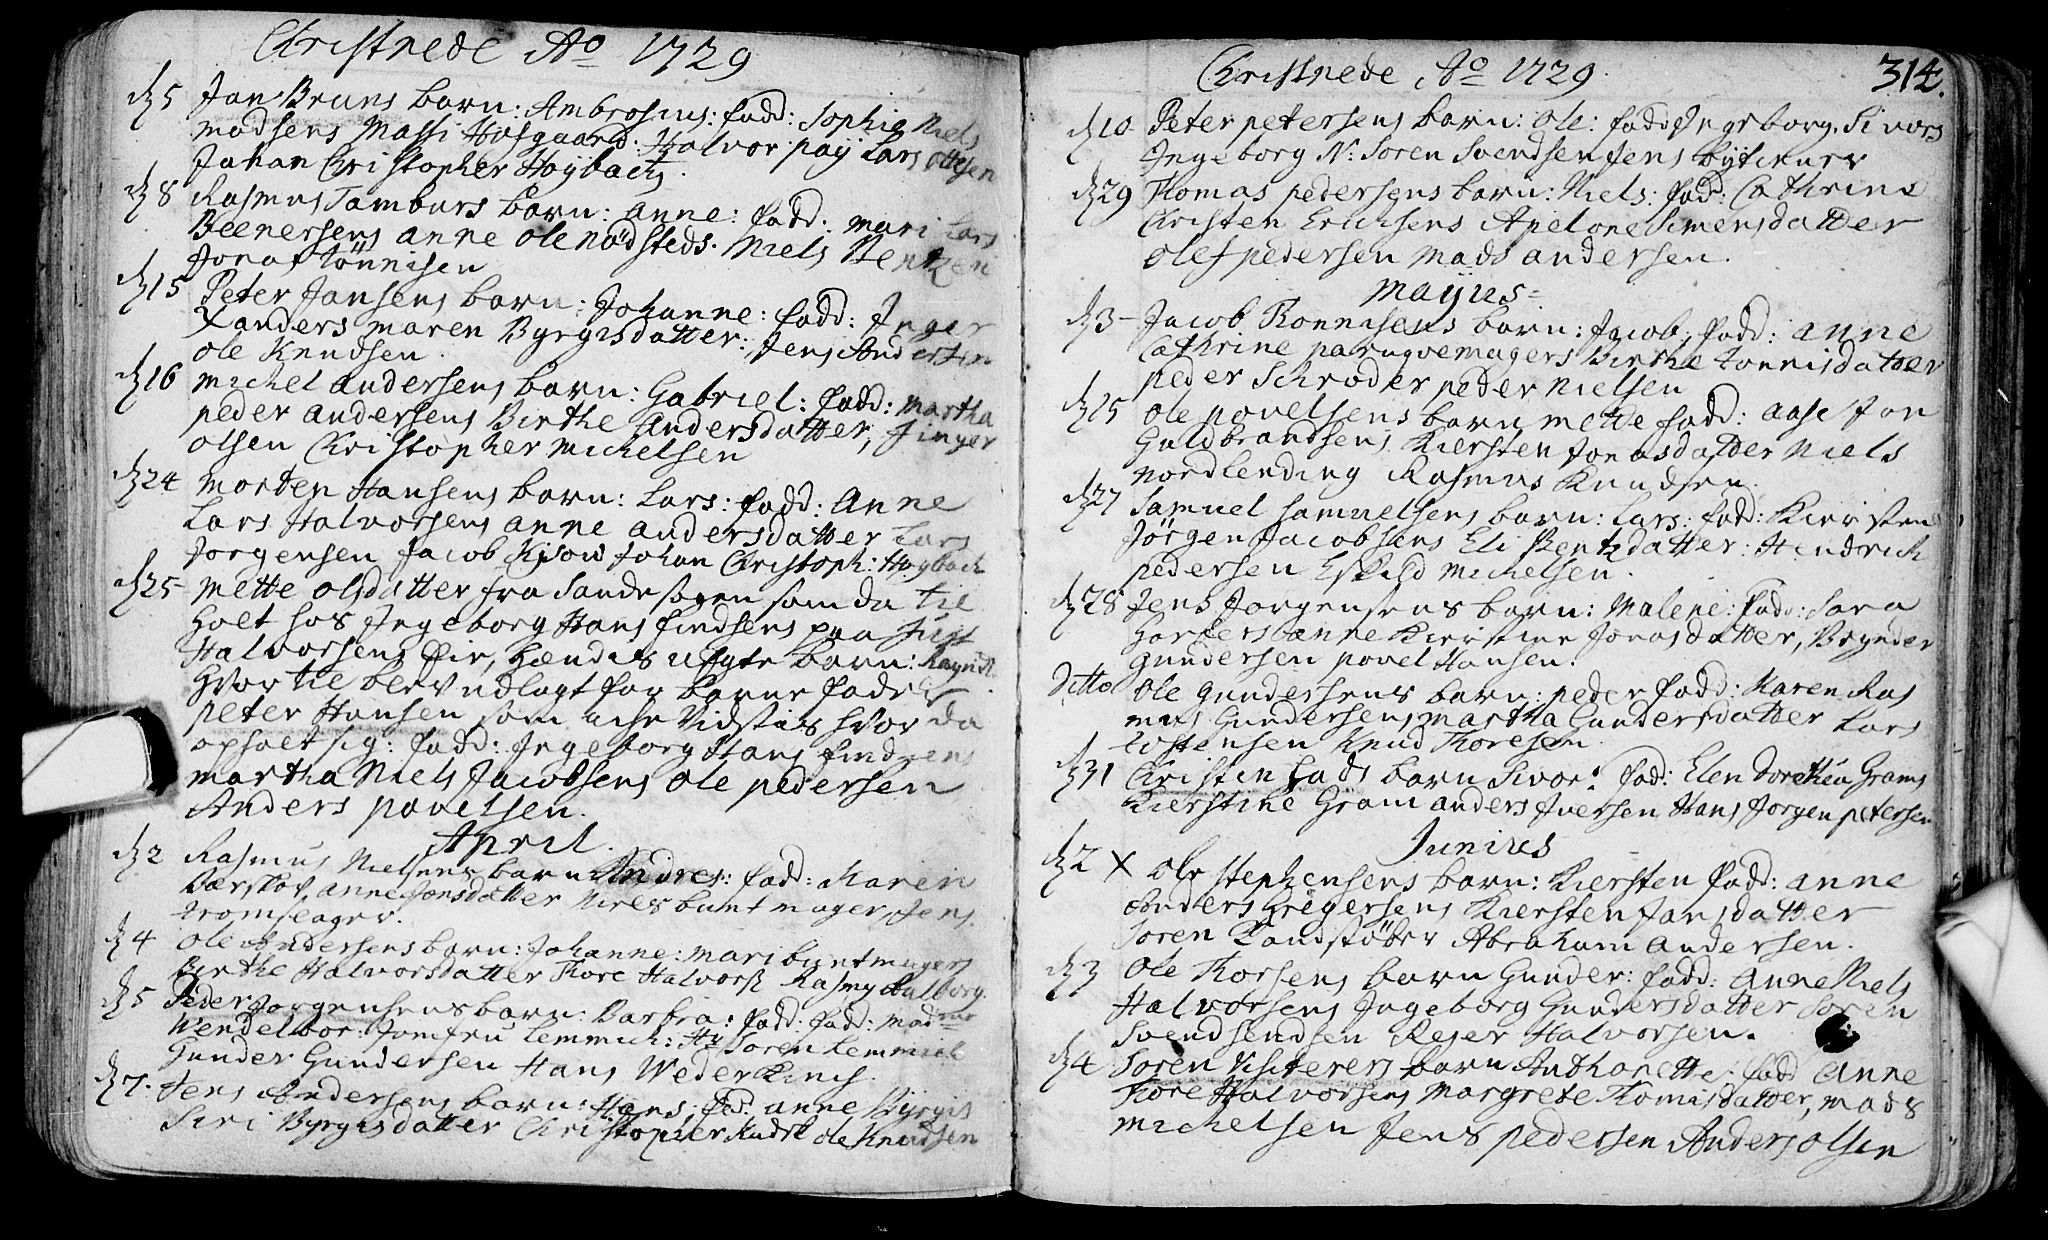 Christnede Ao 1729
d 5 Jan Bruns barn: Ambrosius: fadd: Sophie Niels
Madsens Massi Hofgaard: Halvor pay Lars Ottesen
Johan Christopher Høybach.
d 8 Rasmus Tamburs barn: Anne: fadd: Mari Lars
Beenersens Anne Ole Nødsteds. Niels
Jonas Tønnisen
d 15 Peter Jansens barn: Johanne: fadd: Inger
Xanders Maren Byrgisdatter: Jens Andersen
Ole Knudsen.
d 16 Michel Andersens barn: Gabriel: fadd: Martha
Peder Andersens Birthe Andersdatter,
Olsen Christopher Michelsen
d 24 Morten Hansens barn: Lars: fadd: Anne
Lars Halvorsens Anne Andersdatter Lars
Jorgensen Jacob Johan Christoph: Høybach
d 25 Mette Olsdatter fra Sande sogen som da til
holt hos Ingeborg Hans findsens paa
Halvorsens Eie, hendis uegte barn:
hvor til blev udlagt for barne fader
Peter Hansen som iche vidstis hvor da
opholt sig: fadd: Ingeborg Hans findsens
Martha Niels Jacobsens Ole Pedersen
Anders Povelsen.
April.
d 2 Rasmus Nielsens barn Andres: fadd: Karen
Anne Jonsdatter Niels buntmager, Jens
d 4 Ole Andersens barn: Johanne: Mari buntmagers
Birthe Halvorsdatter Tore Halvors Rasmus Aalborg.
d 5 Peder Jorgensens barn: Barbra: fadd: fadd: Madme
Wendelboe: Jomfru Lemmich: Hr Soren Lemmich
Gunder Gundersen Hans
d 7. Jens Andersens barn: Hans: fad. Anne Byrgis
Siri Byrgisdatter Christopher Ole Knudsen
Christnede Ao 1729.
314.
d 10 Peter Petersens barn: Ole: fadd Ingeborg Sivors
Ingeborg N: Soren Svendsen Jens
d 29 Thomas Pedersens barn: Niels: fad: Cathrine
Christen Erichsens Apelone Simensdatter
Olef Pedersen Mads Andersen.
Mayus
d 3 Jacob Ronnisens barn: Jacob: fadd: Anne
Cathrine paruqvemagers Birthe Tonnisdatter
Peder Schroder Peder Nielsen
d 15 Ole Povelsens barn Mette fadd: Aase Jon
Guldbrandsens Kiersten Jonasdatter Niels
Nordlending Rasmus Knudsen.
d 27 Samuel Samuelsens barn: Lars: fad: Kiersten
Jørgen Jacobsens Eli Bentsdatter: Hendrich
Pedersen Eskild Michelsen.
d 28 Jens Jorgensens barn: Malene: fadd: Sara
Anne Kierstine Jonasdatter, Brynder
Gundersen Povel Hansen.
Ditto Ole Gundersens barn: Peder fadd: Karen Ras
mus Gundersens Martha Gundersdatter Lars
Tostensen Knud Thoresen.
d 31 Christen Lads barn Sivor: fad: Elen Dorethea Grams
Kierstine Gram Anders Iversen Hans Jorgen Petersen
Junius
d 2 X Ole Stephensens barn: Kiersten fadd: Anne
Anders Gregersens Kiersten Jansdatter
Soren Abraham Andersen.
d 3 Ole Thorsens barn Gunder: fadd: Anne Niels
Halvorsens Ingeborg Gundersdatter Soren
Svendsendsen Rejer Halvorsen.
d 4 Soren Visiterers barn Anthonette: fadd Anne
Thore Halvorsens Margrete Thomisdatter, Mads
Michelsen Jens Pedersen Anders Olsen